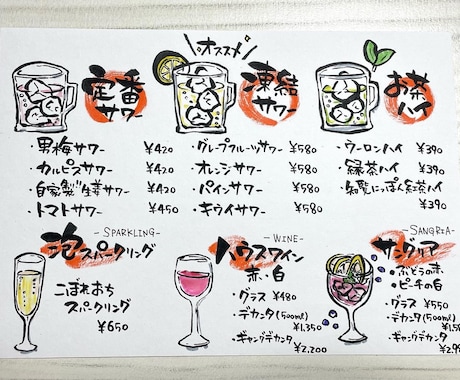 定番サワー
・男梅サワー ¥420
・カルピスサワー ¥420
・自家製生姜サワー ¥420
・トマトサワー ¥450
オススメ
凍結サワー
・グレープフルーツサワー ¥580
・オレンジサワー ¥580
・パインサワー ¥580
・キウイサワー ¥580
お茶ハイ
・ウーロンハイ ¥390
・緑茶ハイ ¥390
・知覧にっぽん紅茶ハイ
¥390
-SPARKLING-
泡スパークリング
こぼれおち
スパークリング
¥650
-WINE-
ハウスワイン
赤・白
・グラス ¥480
・デカンタ(500ml)
¥1,350
・ギャングデカンタ
¥2,200
-SANGRIA-
サングリア
・ぶどうの木
・ピーチの白
・グラス ¥550
・デカンタ(500ml)
・ギャングデカンタ